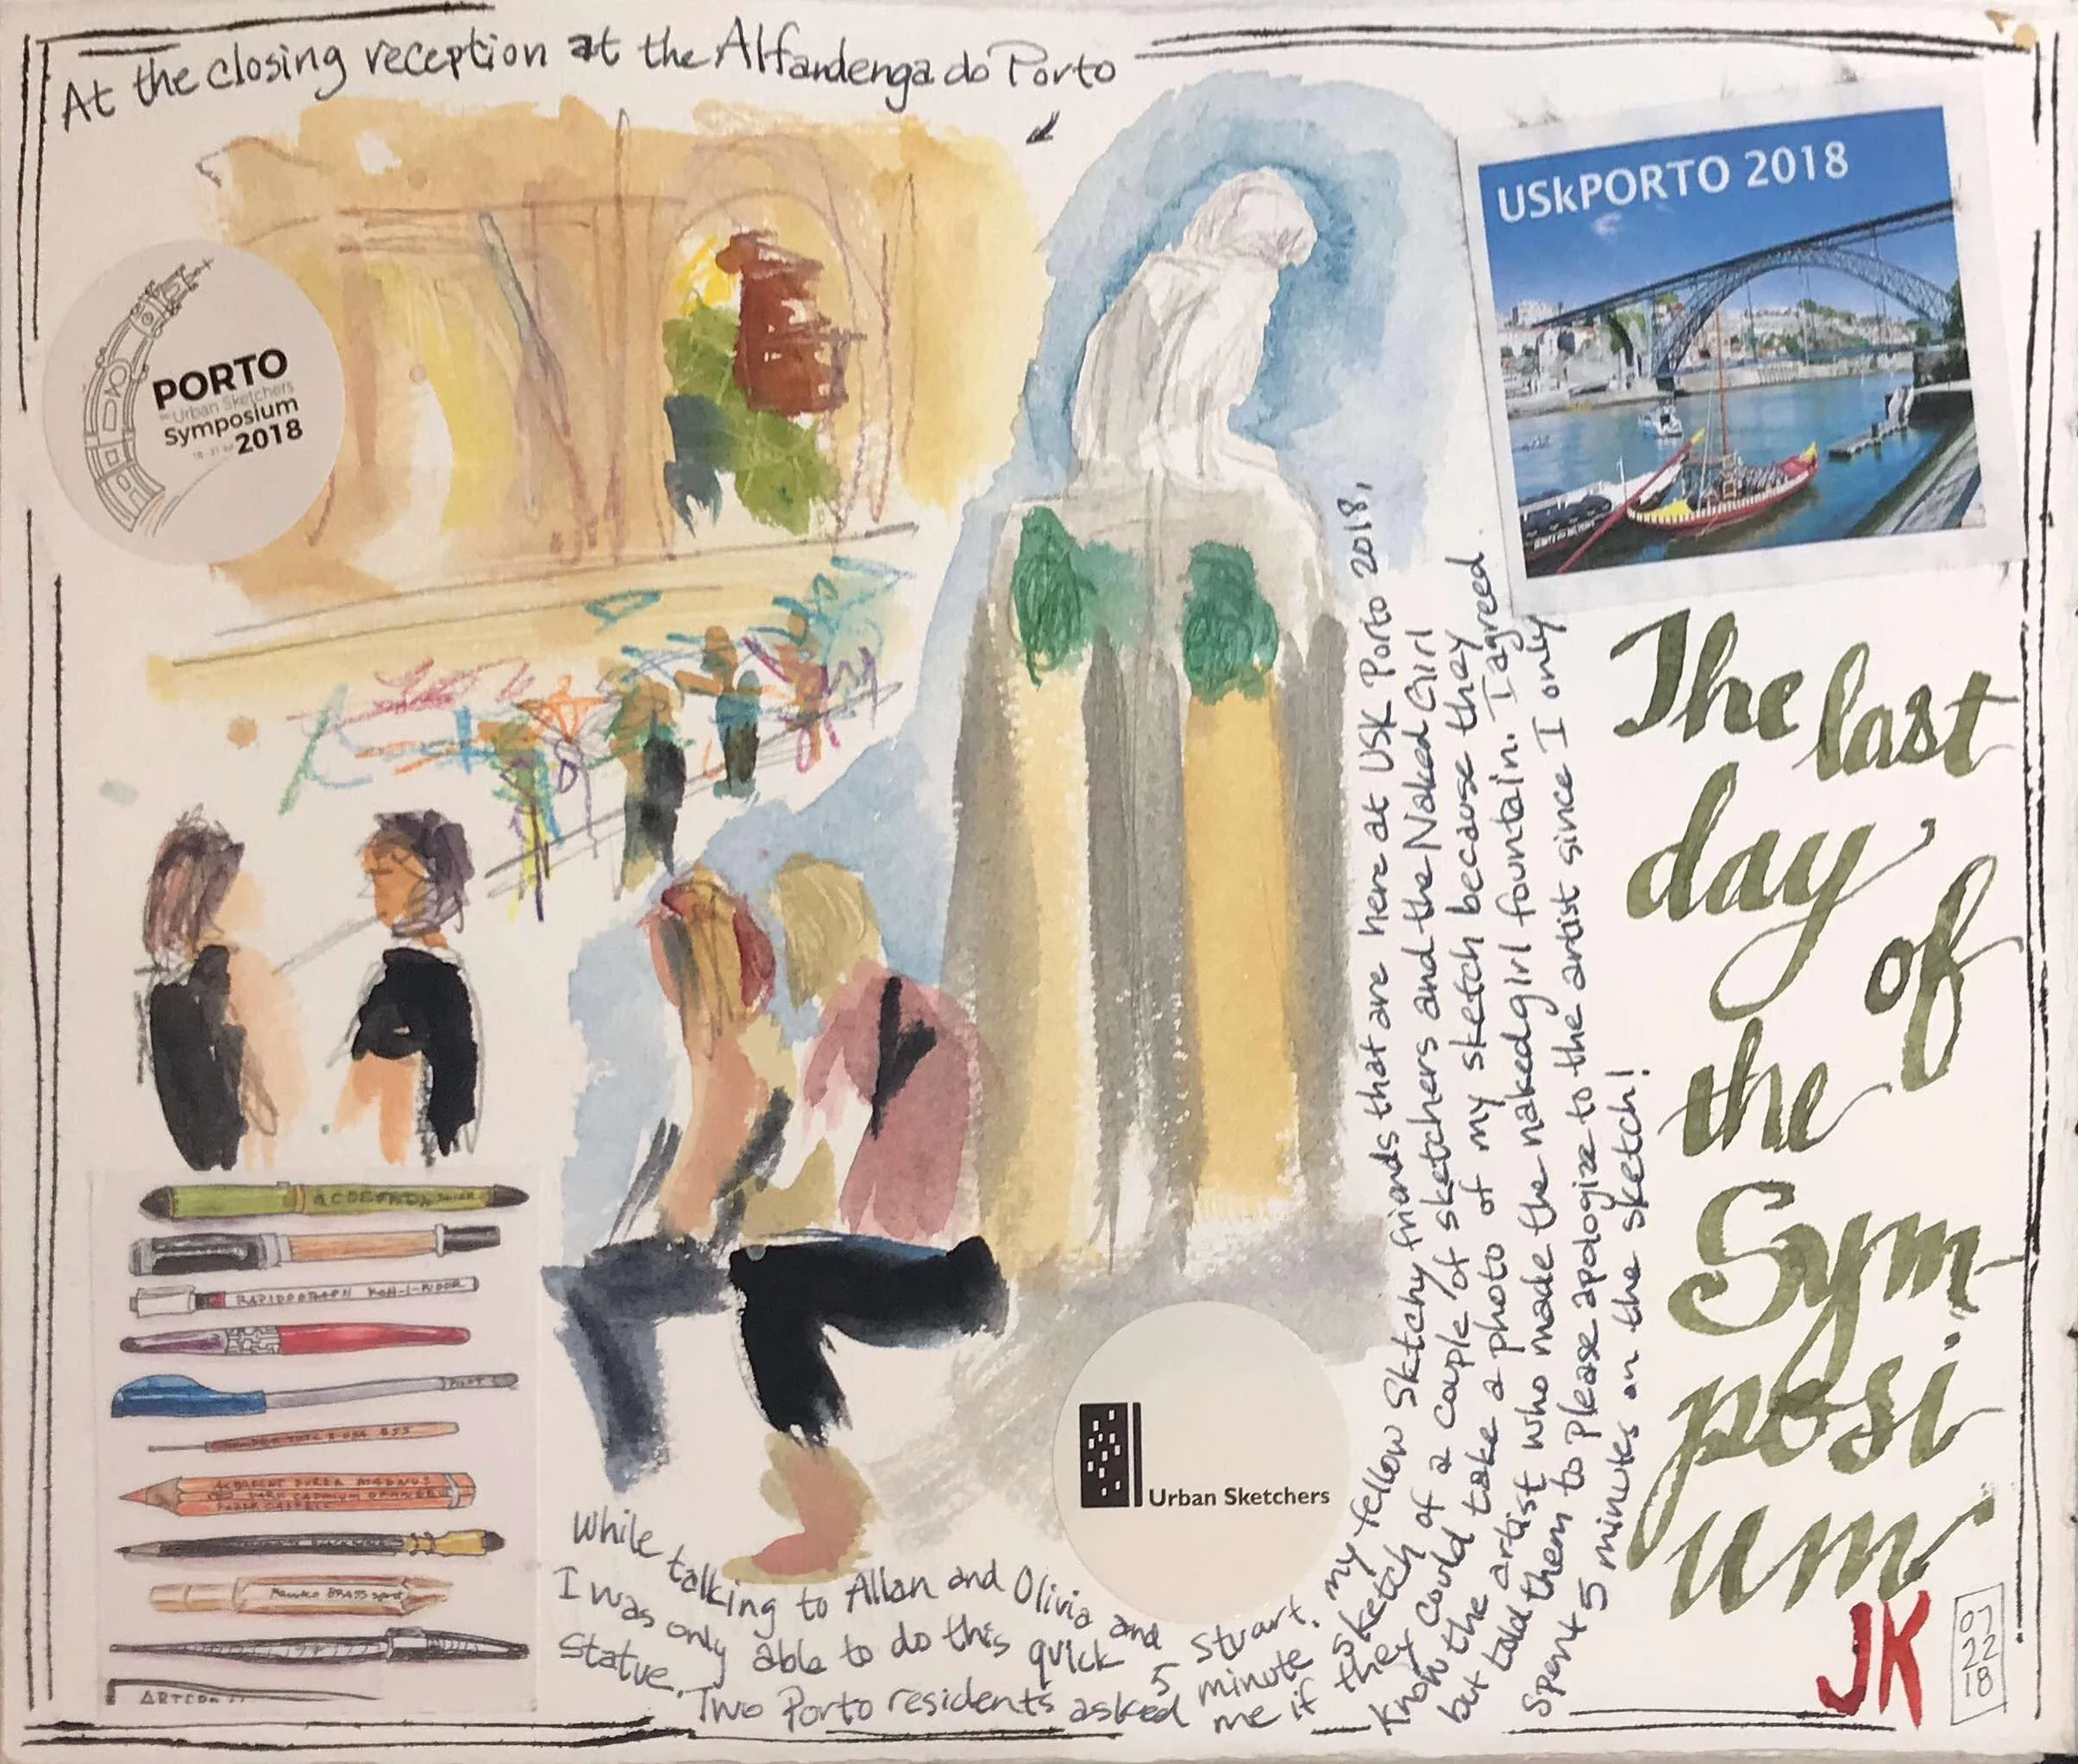 At the closing reception at the Alfandenga do Porto
PORTO
Urban Sketchers
Symposium
2018
USkPORTO 2018
The last
day
of
the
Sym-
posi
um
JK
07
22
18
RAPIDOGRAPH KOH-I-NOOR
ALBRECHT DURER MAGNUS
DARK CADMIUM ORANGE
FABER CASTELL
BRASS sport
Urban Sketchers
While talking to Allan and Olivia and Stuart, my fellow Sktchy friends that are here at USK Porto 2018,
I was only able to do this quick 5 minute sketch of a couple of sketchers and the Naked Girl
Statue. Two Porto residents asked me if they could take a photo of my sketch because they
Know the artist who made the naked girl fountain. I agreed.
but told them to please apologize to the artist since I only
Spent 5 minutes on the sketch!